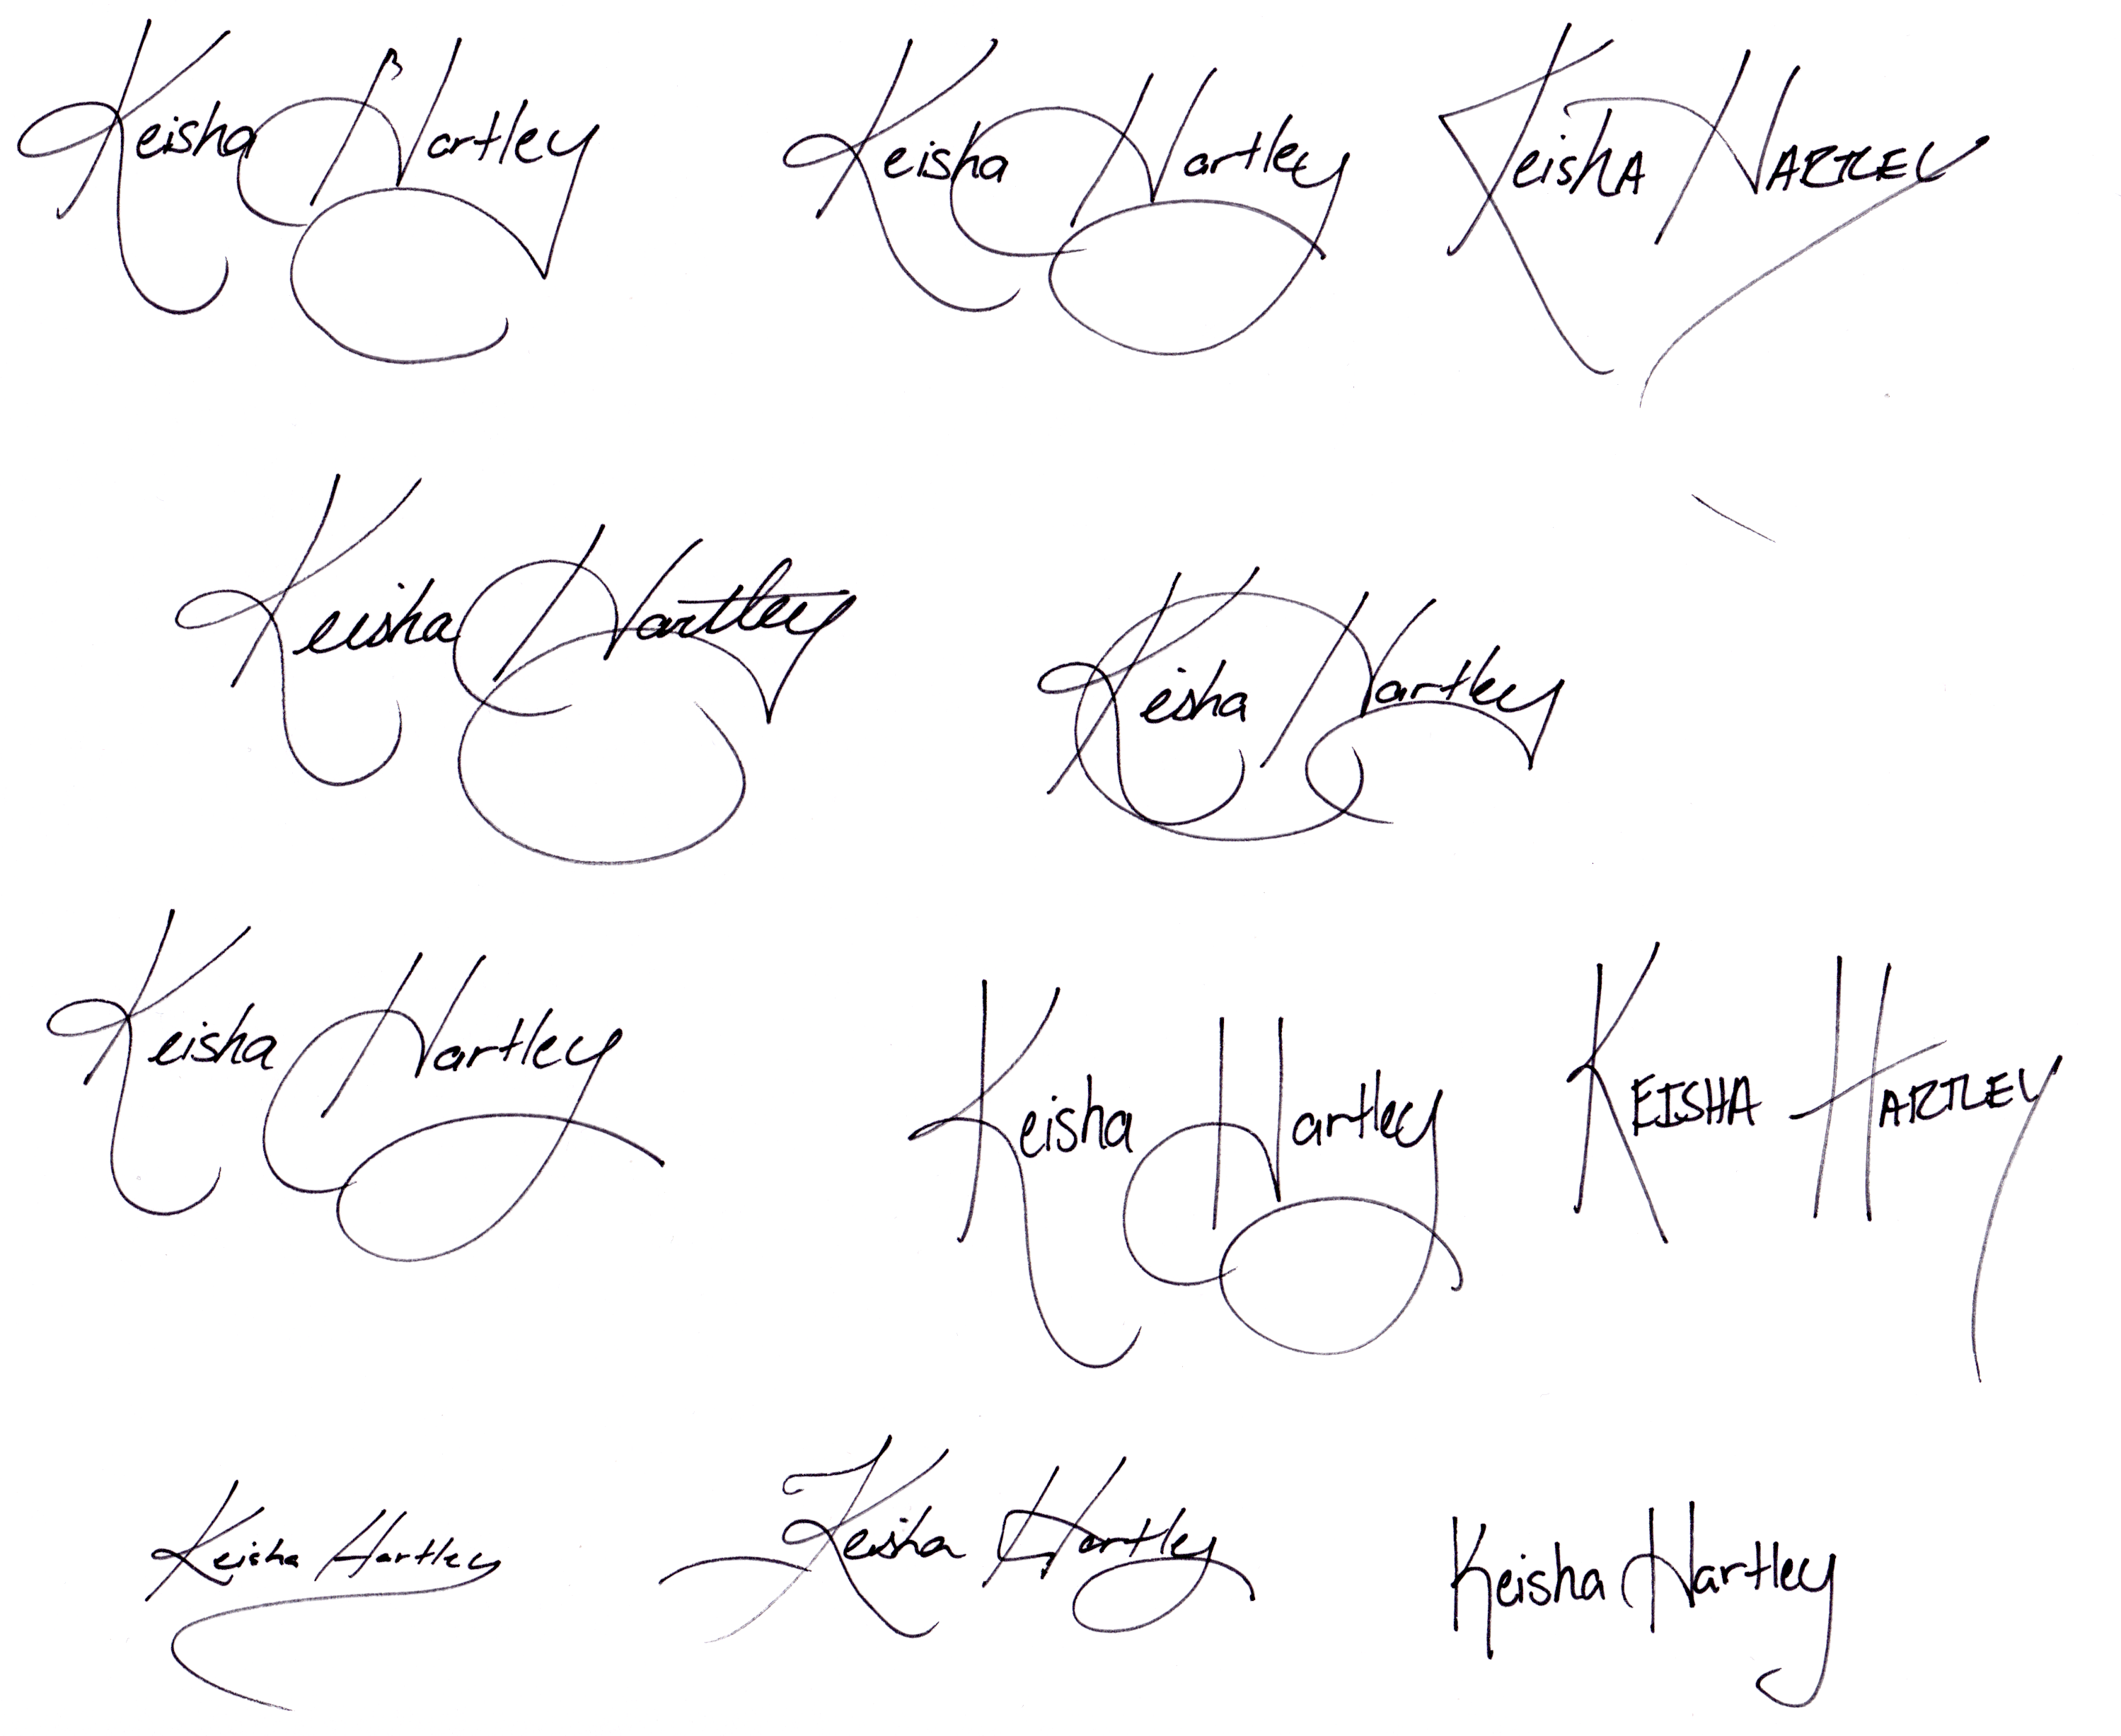 Keisha Hartley Keisha Hartley KeishA HARTLEY
Keisha Hartley Keisha Hartley
Keisha Hartley Keisha Hartley KEISHA HARTLEY
Keisha Hartley Keisha Hartley Keisha Hartley